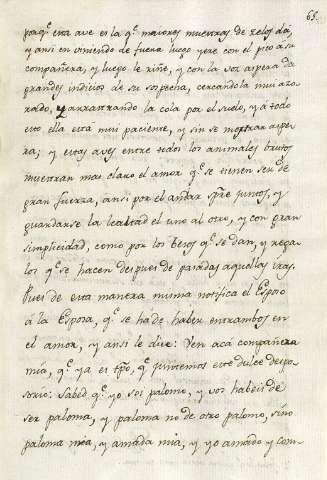 65.
porq.e esta ave es la q.e maiores muestras de zelos dá,
y ansi en viniendo de fuera luego yere con el pico a su
compañera, y luego le riñe, y con la voz aspera da
grandes indicios de su sospecha, cercandola mui azo-
rado, y arrastrando la cola por el suelo, y á todo
esto ella esta mui paciente, y sin se mostrar aspe-
ra; y estas aves entre todos los animales brutos
muestran mas claro el amor q.e se tienen ser de
gran fuerza, ansi por el andar spre juntos, y
guardarse la lealtad el uno al otro, y con gran
simplicidad, como por los besos q.e se dan, y rega-
los q.e se hacen despues de pasadas aquellas iras.
Pues de esta manera misma notifica el Esposo
á la Esposa, q.e se há de haber entrambos en
el amor, y ansi le dice: Ven acá compañera
mia, q.e ya es tpo, q.e juntemos este dulce despo-
sorio: Sabed q.e yo soi palomo, y vos habeis de
ser paloma, y paloma no de otro palomo, sino
paloma mia, y amada mia, y yo amado y com-